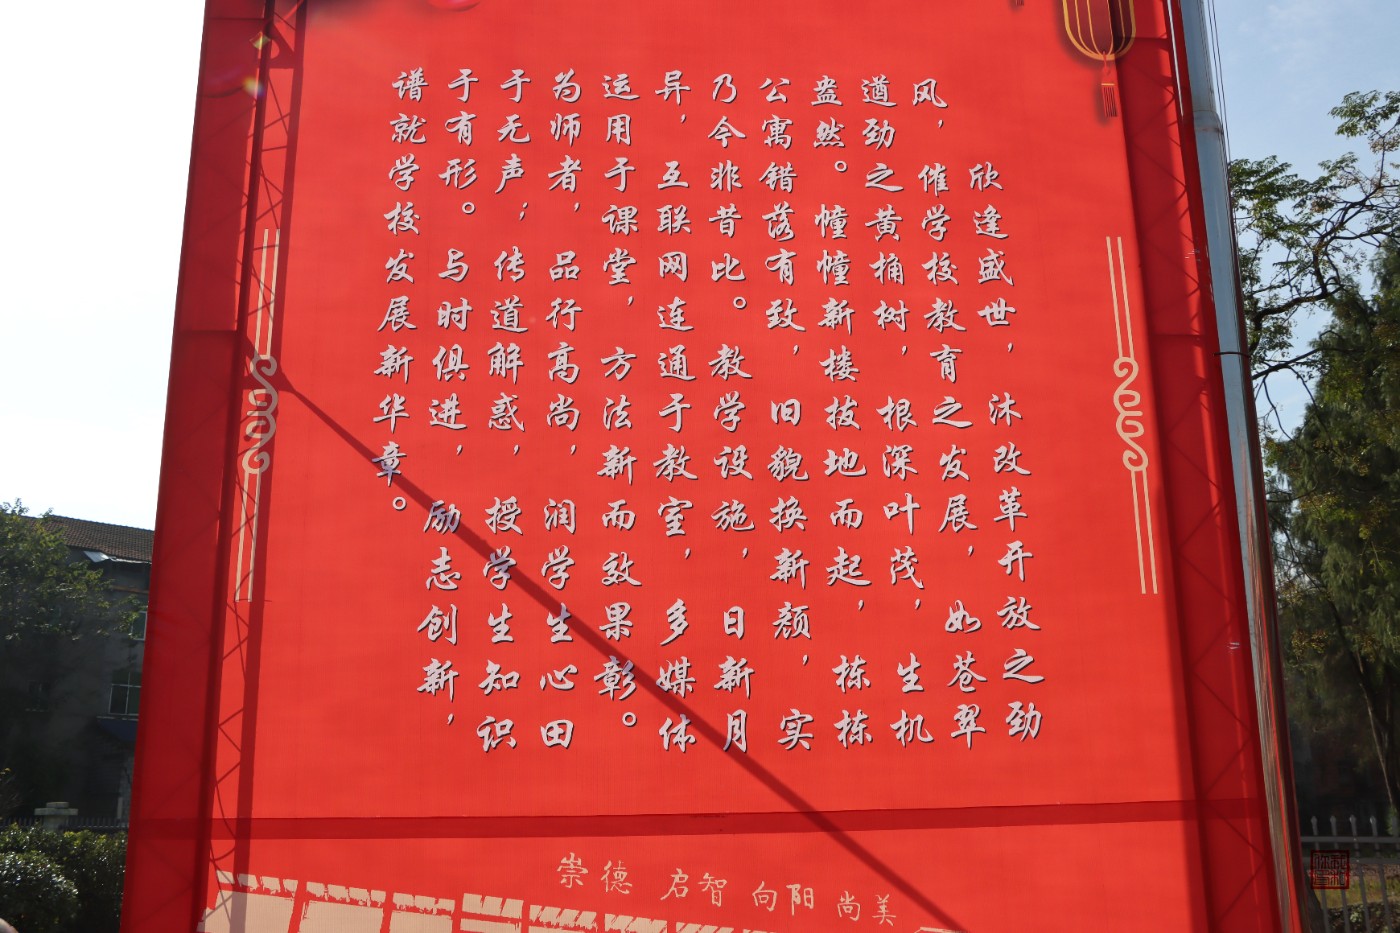 欣逢盛世，沐改革开放之劲
风，催学校教育之发展，如苍翠
遒劲之黄桷树，根深叶茂，生机
盎然。幢幢新楼拔地而起，栋栋
公寓错落有致，旧貌换新颜，实
乃今非昔比。教学设施，日新月
异，互联网连通于教室，多媒体
运用于课堂，方法新而效果彰。
为师者，品行高尚，润学生心田
于无声；传道解惑，授学生知识
于有形。与时俱进，励志创新，
谱就学校发展新华章。
崇德 启智 向阳 尚美